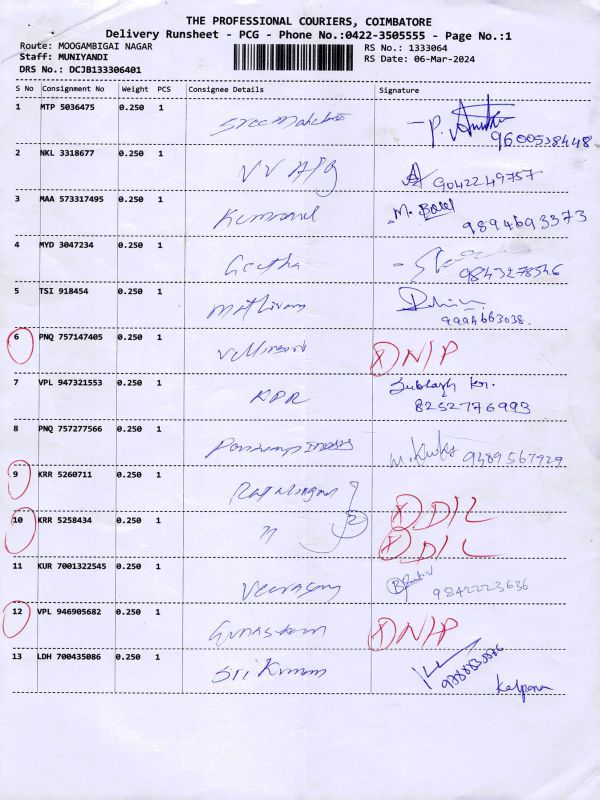 THE PROFESSIONAL COURIERS, COIMBATORE
Delivery Runsheet - PCG - Phone No.:0422-3505555 - Page No.:1
Route: MOOGAMBIGAI NAGAR RS No.: 1333064
Staff: MUNIYANDI RS Date: 06-Mar-2024
DRS No.: DCJB133306401
S No Consignment No Weight PCS Consignee Details Signature
1 MTP 5036475 0.250 1
9600538448
2 NKL 3318677 0.250 1 VV
9042249757
3 MAA 573317495 0.250 1 M.
9894693373
4 MYD 3047234 0.250 1 Geetha
9843278546
5 TSI 918454 0.250 1
9994663038.
6 PNQ 757147405 0.250 1 X N/P
7 VPL 947321553 0.250 1 KPR
8252776993
8 PNQ 757277566 0.250 1 9489567929
9 KRR 5260711 0.250 1 X D/L
10 KRR 5258434 0.250 1 11 2 X D/L
11 KUR 7001322545 0.250 1 9842223636
12 VPL 946905682 0.250 1 X N/P
13 LDH 700435086 0.250 1 Sri Kumar
Kalpana